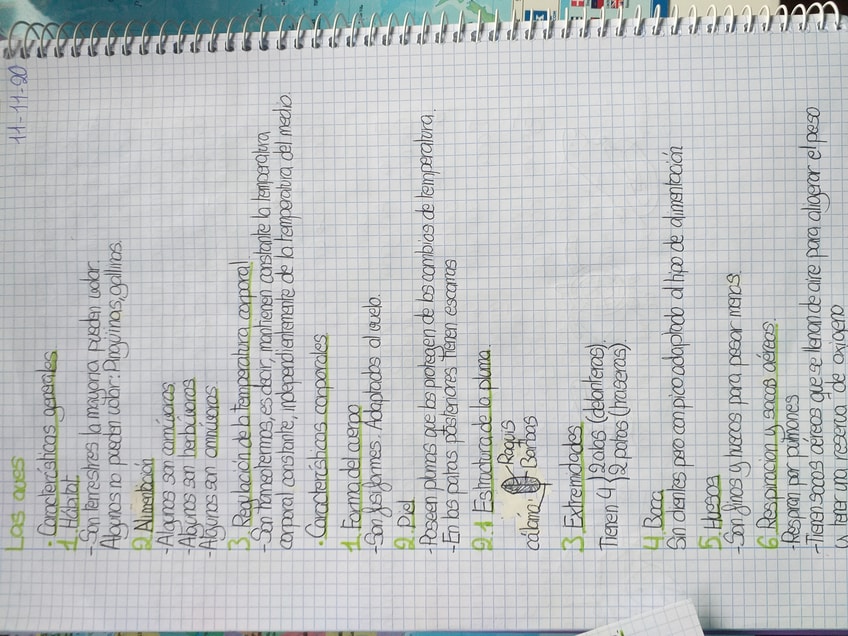 Las aves 11-11-20
· Características generales
1. Hábitat
- Son terrestres la mayoría pueden volar.
Algunos no pueden volar: Pingüinos, gallinas.
2. Alimentación
- Algunos son carnívoros
- Algunos son herbívoros
- Algunos son omnívoros
3. Regulación de la temperatura corporal
- Son homeotermos, es decir, mantienen constante la temperatura
corporal constante, independientemente de la temperatura del medio.
· Características corporales
1. Forma del cuerpo
- Son fusiformes. Adaptados al vuelo.
2. Piel
- Poseen plumas que los protegen de los cambios de temperatura.
- En las patas posteriores tienen escamas
2.1 Estructura de la pluma.
Raquis
cálamo Barbas
3. Extremidades
Tienen 4 { 2 alas (delanteras).
2 patas (traseras).
4. Boca
Sin dientes pero con pico adaptado al tipo de alimentación
5. Huesos
- Son finos y huecos para pesar menos.
6. Respiración y sacos aéreos.
- Respiran por pulmones
- Tienen sacos aéreos que se llenan de aire para aligerar el peso
y tener una reserva de oxígeno